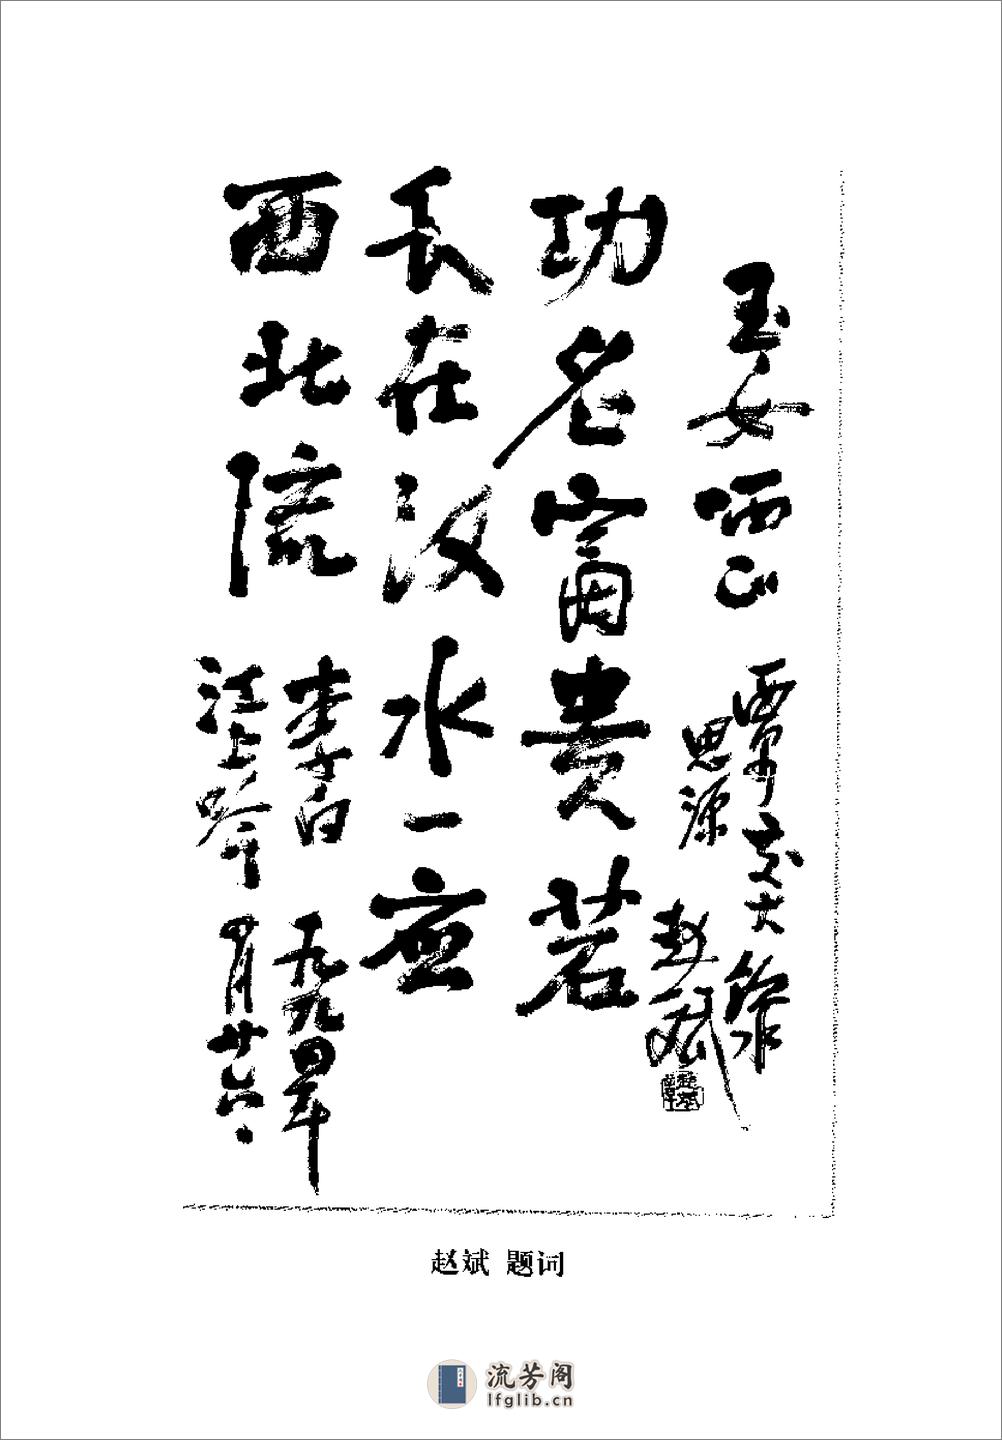 玉女哂正
西安交大
思源 赵斌
功名富贵若
长在汉水一应
西北流
李白 一九九四年
江上吟 四月廿六
赵斌 题词
流芳阁
lfglib.cn